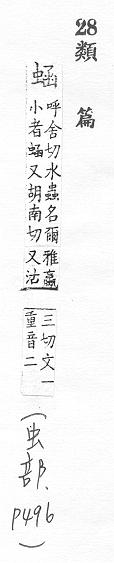 28 類篇
蜬
呼含切水蟲名爾雅蠃
小者蜬又胡南切又沽
三切文一
重音二
(虫部. P496)